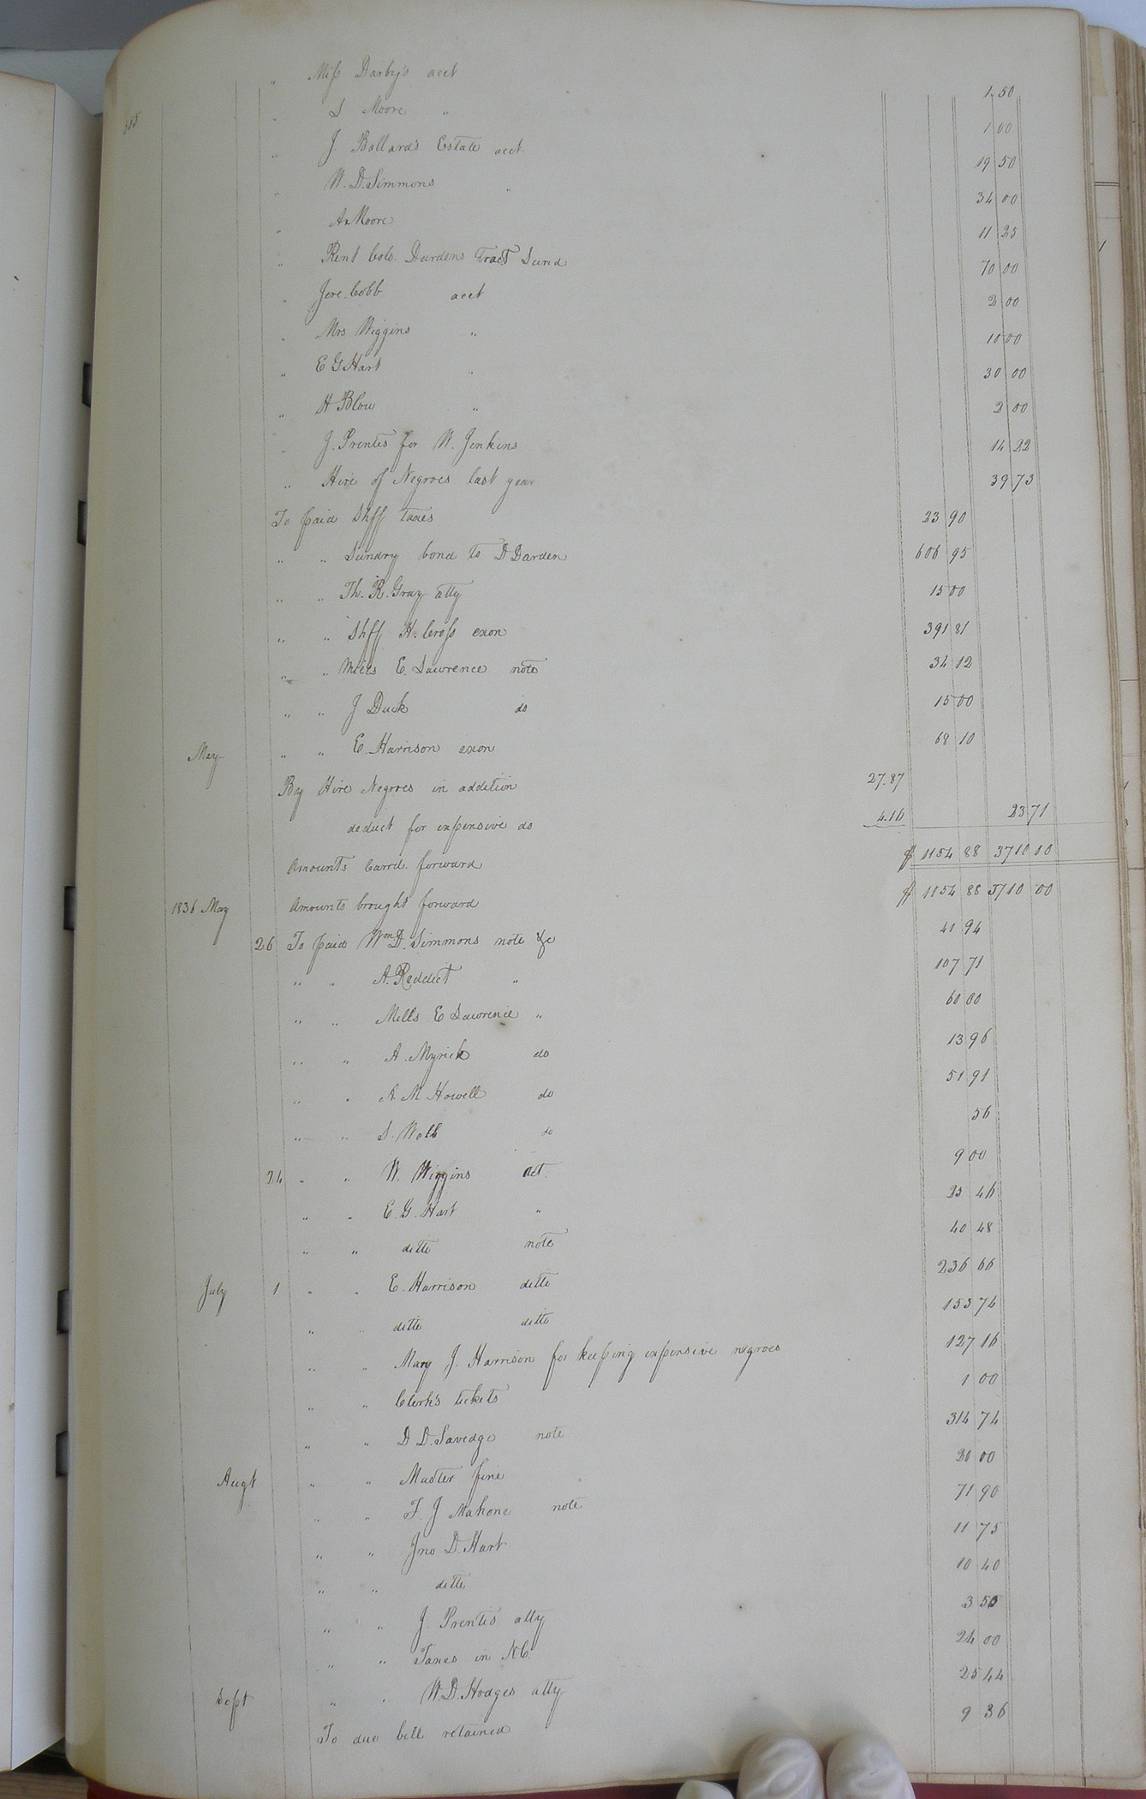 315
" Miss Darby's acct 1.50
" S Moore " 1 00
" J Ballard's Estate acct 19 50
" W. D. Simmons " 34 00
" A Moore 11 25
" Rent Cole. Dardens Tract Land 70 00
" Jere. Cobb acct 2 00
" Mrs Wiggins " 10 00
" E G Hart " 30 00
" H Blow " 2 00
" J. Prentis for W. Jenkins 14 22
" Hire of Negroes last year 39 73
To paid Shff taxes 23 90
" " Sundry bond to D Darden 606 95
" " Th. R. Gray atty 15 00
" " Shff H. Cross exon 391 81
" " Mills E. Lawrence note 34 12
" " J Duck do 15 00
May " " E. Harrison exon 68 10
By Hire Negroes in addition 27.87
deduct for expensive do 4.16 23 71
Amounts Carrd. forward $ 1154 88 3710 00
1836 May Amounts brought forward $ 1154 88 3710 00
26 To paid Wm D. Simmons note &c 41 94
" " A. Reddick " 107 71
" " Mills E Lawrence " 60 00
" " A. Myrick do 13 96
" " A. M Howell do 51 91
" " S. Webb do 56
24 " " W. Wiggins act. 9 00
" " E. G. Hart " 23 46
" " ditto note 40 48
July 1 " " E. Harrison ditto 236 66
" " ditto ditto 153 74
" " Mary J. Harrison for keeping expensive negroes 127 16
" " Clerk's tickets 1 00
" " D D. Savedge note 314 74
Augt " " Muster fine 20 00
" " T. J Mahone note 71 90
" " Jno D. Hart 11 75
" " ditto 10 40
" " J. Prentis atty 3 50
" " Taxes in N.C. 24 00
Sept " " W. D. Hodges atty 25 44
To due bill retained 9 36